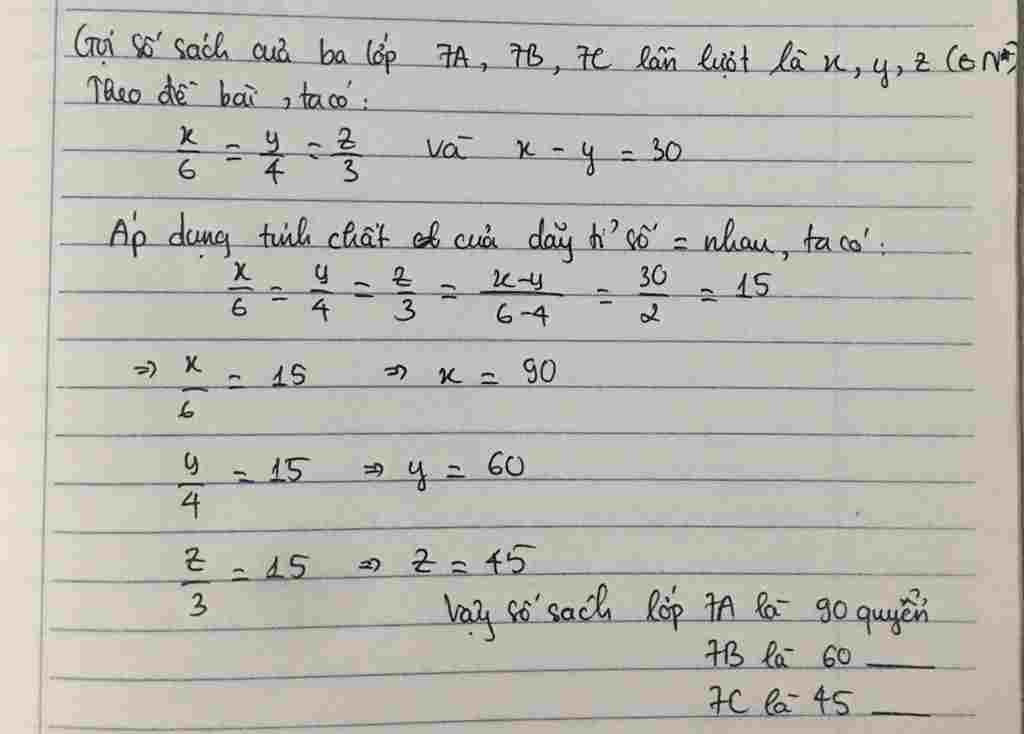 Gọi số sách của ba lớp 7A, 7B, 7C lần lượt là x, y, z (∈ N*)
Theo đề bài, ta có:
x/6 = y/4 = z/3 và x - y = 30
Áp dụng tính chất của dãy tỉ số = nhau, ta có:
x/6 = y/4 = z/3 = x-y/6-4 = 30/2 = 15
=> x/6 = 15 => x = 90
y/4 = 15 => y = 60
z/3 = 15 => z = 45
Vậy số sách lớp 7A là 90 quyển
7B là 60 ___
7C là 45 ___